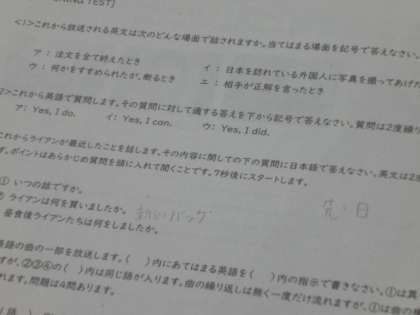 ING TEST]
<1>これから放送される英文は次のどんな場面で話されますか。当てはまる場面を記号で答えなさい。
ア：注文を全て終えたとき
イ：日本を訪れている外国人に写真を撮ってあげた
ウ：何かをすすめられたが、断るとき
エ：相手が正解を言ったとき
2>これから英語で質問します。その質問に対して適する答えを下から記号で答えなさい。質問は2度繰り
ア：Yes, I do.
イ：Yes, I can.
ウ：Yes, I did.
これからライアンが最近したことを話します。その内容に関しての下の質問に日本語で答えなさい。英文は2度
す。ポイントはあらかじめ質問を頭に入れて聞くことです。7秒後にスタートします。
① いつの話ですか。
先 日
ライアンは何を買いましたか。
新しいバッグ
昼食後ライアンたちは何をしましたか。
英語の曲の一部を放送します。( )内にあてはまる英語を( )内の指示で書きなさい。①は異
すが、②③④の( )内は同じ語が入ります。曲の繰り返しは無く一度だけ流れますが、①は曲の
れます。問題は4問あります。